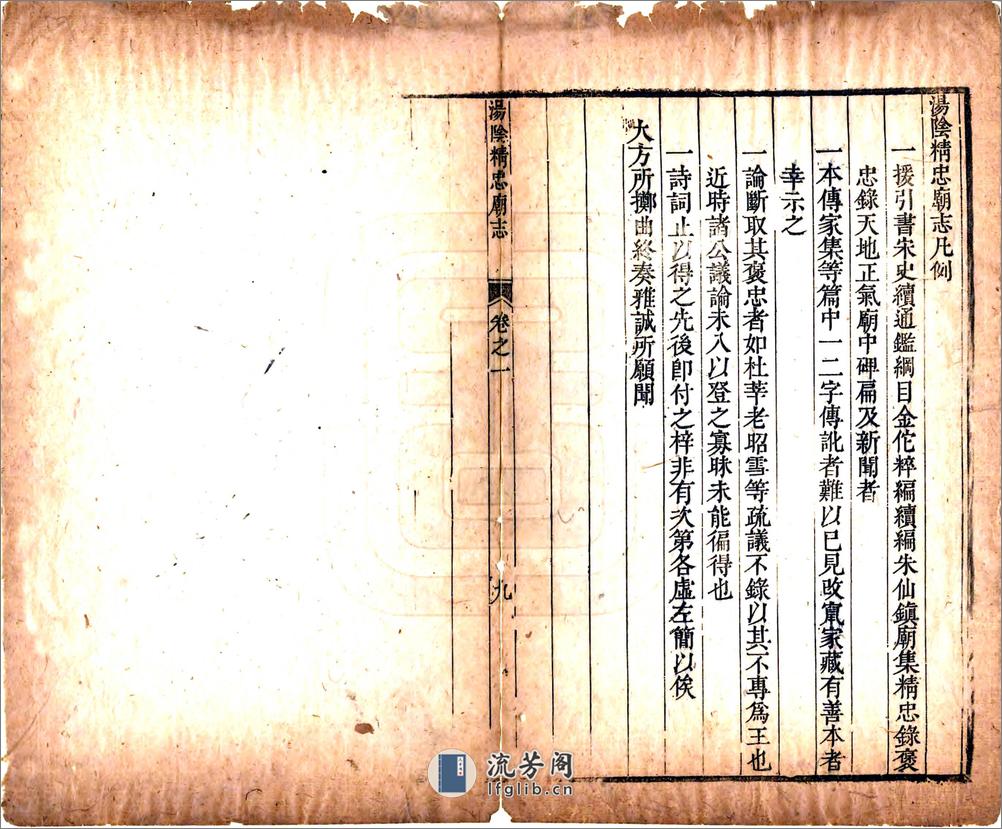 湯陰精忠廟志凡例
一援引書宋史續通鑑綱目金佗粹編續編朱仙鎮廟集精忠錄褒
忠錄天地正氣廟中碑扁及新聞者
一本傳家集等篇中一二字傳訛者難以己見改竄家藏有善本者
幸示之
一論斷取其褒忠者如杜莘老昭雪等疏議不錄以其不專爲王也
近時諸公議論未入以登之寡昧未能徧得也
一詩詞止以得之先後卽付之梓非有次第各虛左簡以俟
大方所擲曲終奏雅誠所願聞
湯陰精忠廟志
卷之一
九
流芳阁
lfglib.cn